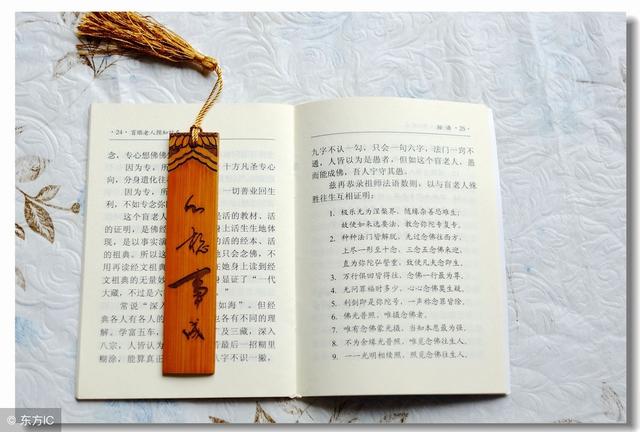 · 24 · 盲眼老人预知
念，专心想佛
因为专，所
十方凡圣专心
向，分身遗化往
因为专，所
一切善业回生
利，不如专念弥
这个盲老
是活的教材，活
的证明，是佛经
身上活生生地体
现，是以实演
活的经本、活
的祖典。所以这
他只会念佛，不
用再读经文祖典
在她身上读到经
文祖典的无量妙
身显证了“一代
大藏，不过是六
常说“深入
如海”。但经
典各人有各人的
也各有不同的
理解。学富五车，
及三藏，深入
八宗，人皆认为
若最后一招糊里
糊涂，能算真正
八字不识一撇，
心
稳
事
成
· 25 ·
九字不认一勾，只会一句六字，法门一窍不
通，人皆以为是愚者，但如这个盲老人，愚
而能成佛，吾人宁守其愚。
兹再恭录祖师法语数则，以与盲老人殊
胜往生互相证明：
1. 极乐无为涅槃界，随缘杂善恐难生；
故使如来选要法，教念弥陀专复专。
2. 种种法门皆解脱，无过念佛往西方，
上尽一形至十念，三念五念佛来迎，
直为弥陀弘誓重，致使凡夫念即生。
3. 万行俱回皆得往，念佛一行最为尊。
4. 无问罪福时多少，心心念佛莫生疑。
5. 利剑即是弥陀号，一声称念罪皆除。
6. 佛光普照，唯摄念佛者。
7. 唯有念佛蒙光摄，当知本愿最为强。
8. 不为余缘光普照，唯觅念佛往生人。
9. 一一光明相续照，照觅念佛往生人。
© 东方IC